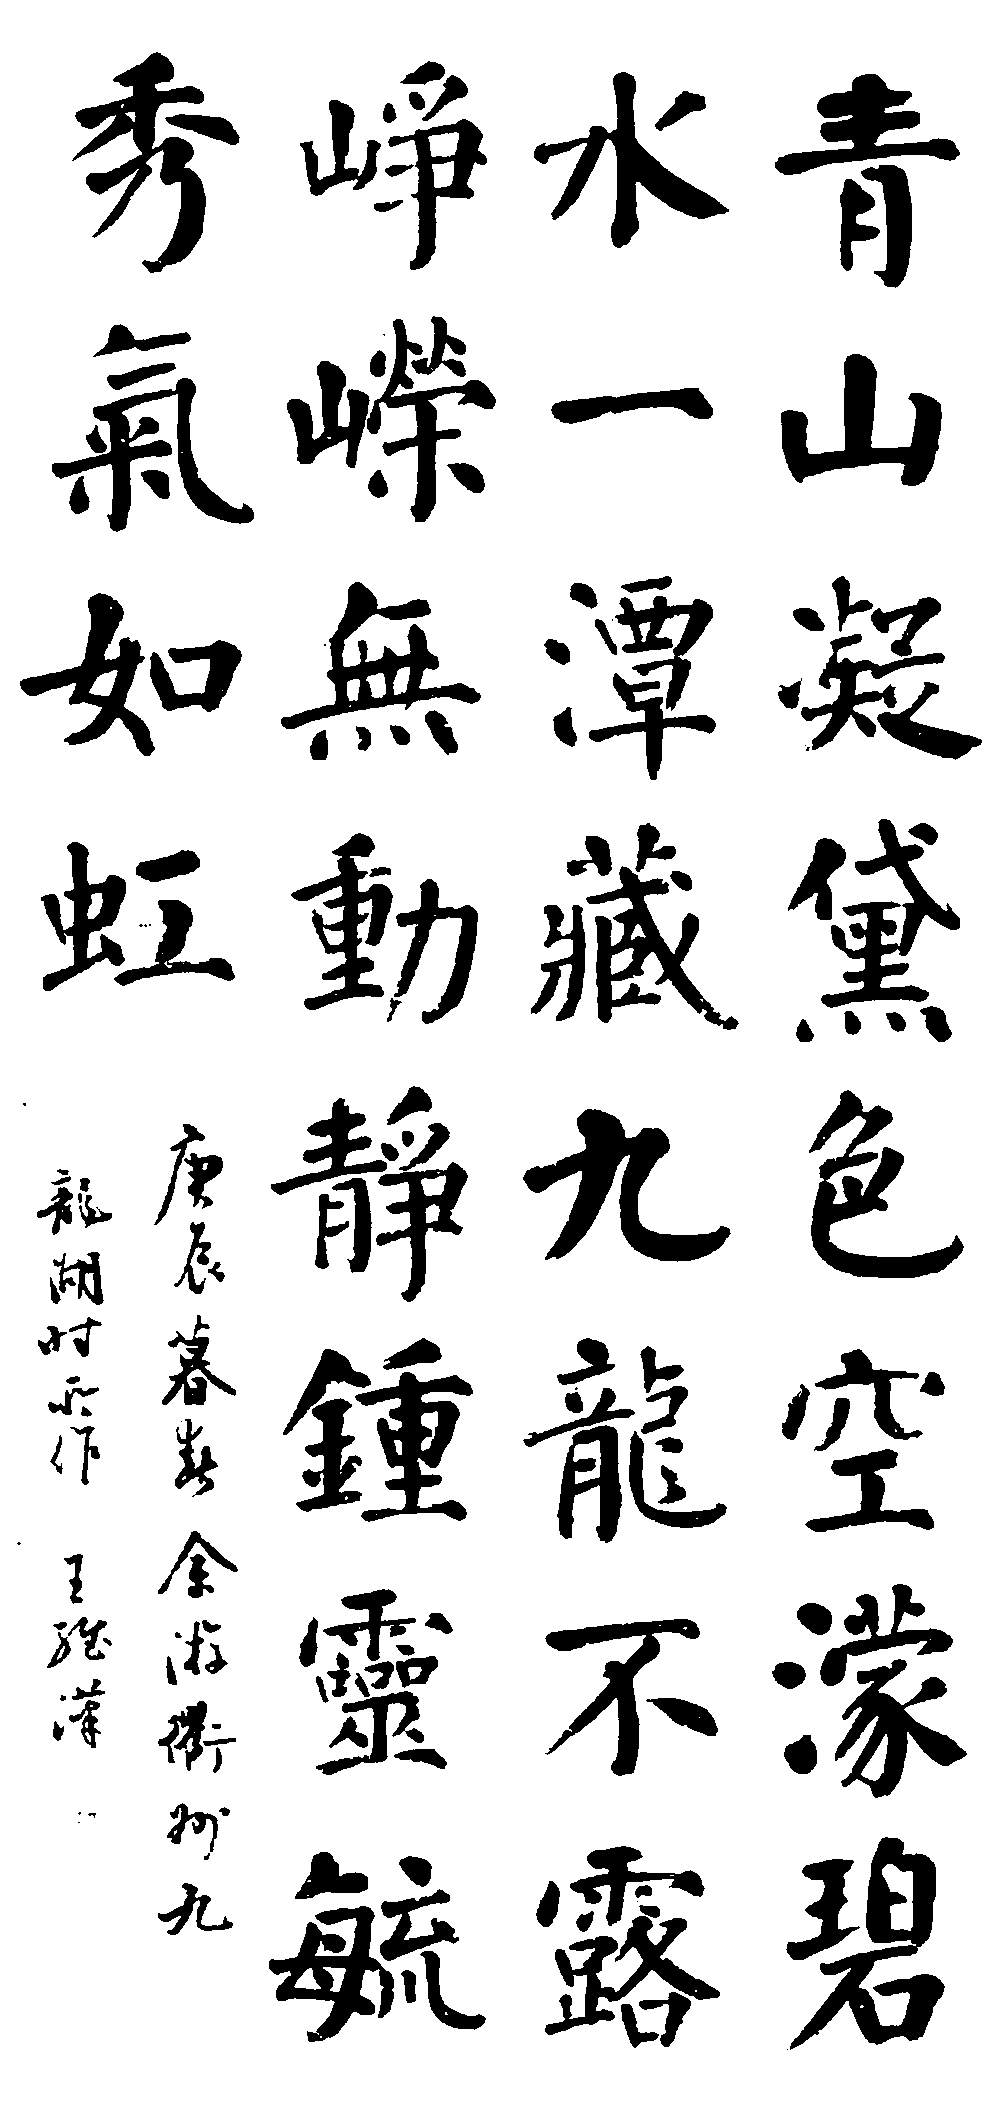 青山凝黛色空濛碧
水一潭藏九龍不露
崢嶸無動靜鍾靈毓
秀氣如虹
庚辰暮春余游衢州九
龍湖时所作 王維漢